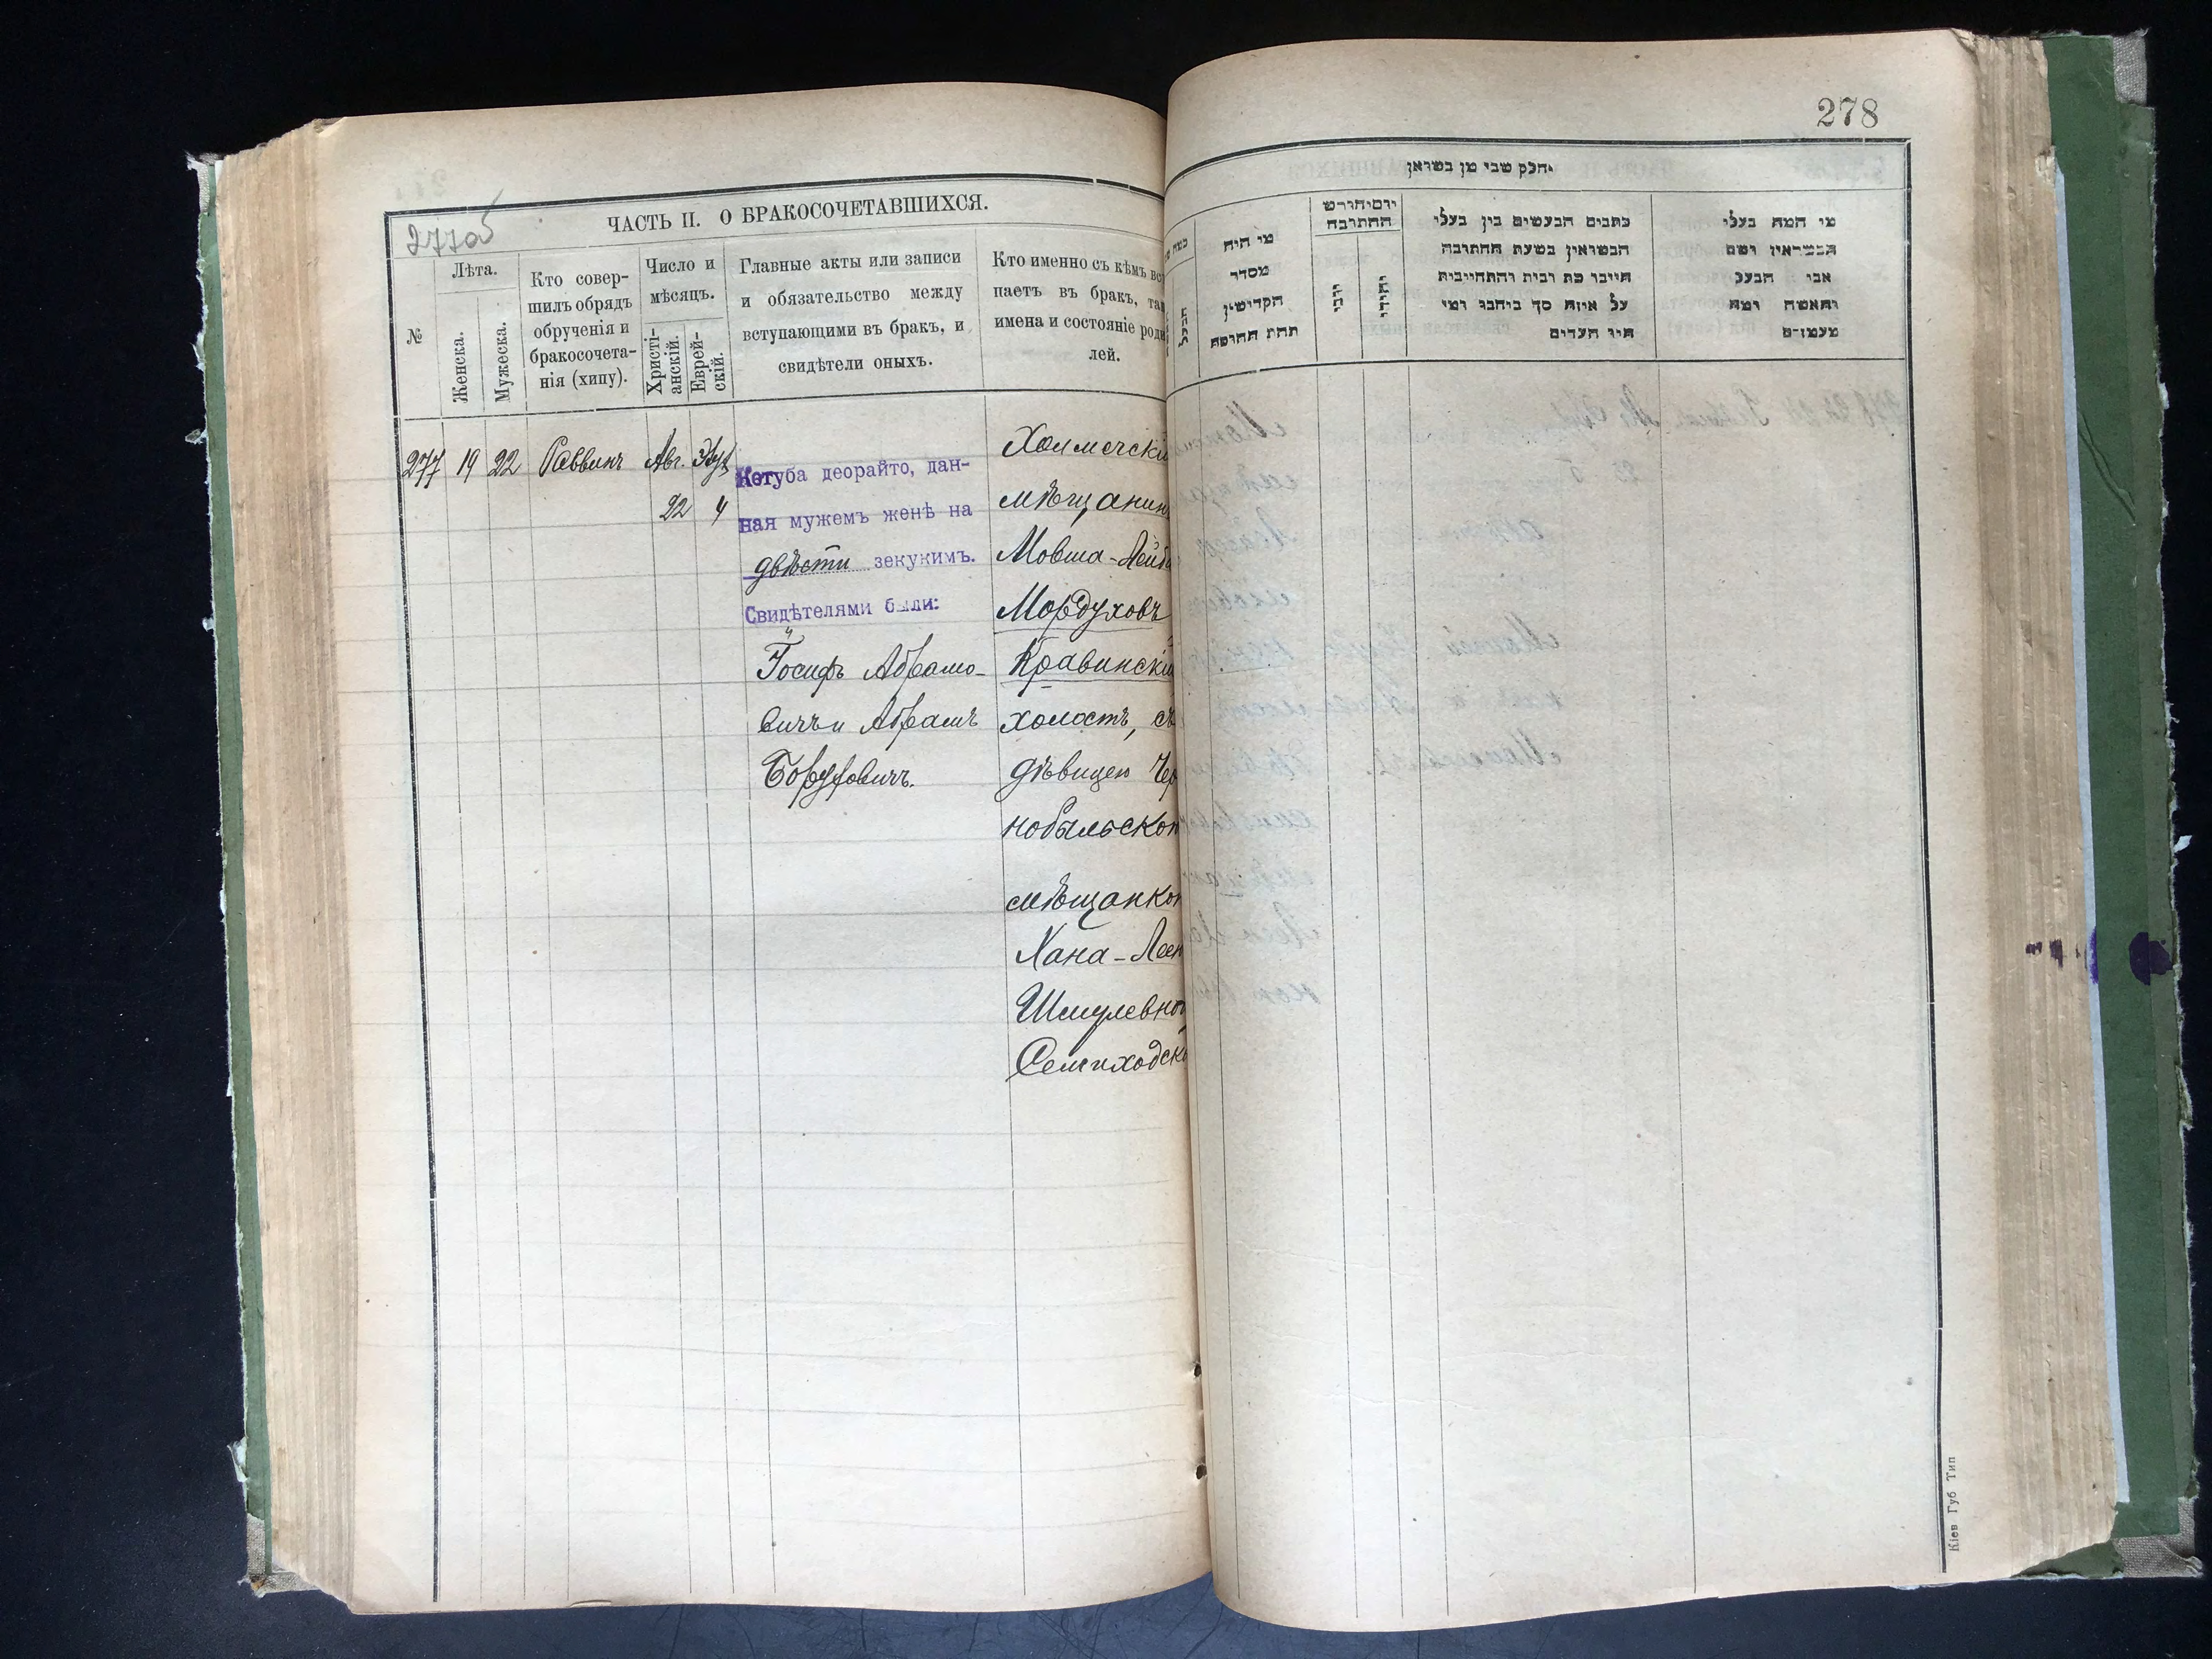 277об
ЧАСТЬ II. О БРАКОСОЧЕТАВШИХСЯ.
№
Лѣта.
Женска.
Мужеска.
Кто совер-
шилъ обрядъ
обрученія и
бракосочета-
нія (хипу).
Число и
мѣсяцъ.
Христі-
анскій.
Еврей-
скій.
Главные акты или записи
и обязательство между
вступающими въ бракъ, и
свидѣтели оныхъ.
Кто именно съ кѣмъ вс
паетъ въ бракъ, та
имена и состояніе роди
лей.
277 19 22 Раввинъ Авг.
22 4
Кетуба деорайто, дан-
ная мужемъ женѣ на
двѣсти зекукимъ.
Свидѣтелями были:
Іосифъ Абрамо-
вичъ и Абрамъ
Борухович.
Холмечскій
мѣщанин
Мовша-Лейб
Мордуховъ
Кравинскій
холостъ, съ
дѣвицею Чер
нобыльской
мѣщанкой
Хана-Леей
Шмулевной
Семиходск
278
חלק שני מן
מי היה
מסדר
הקדושין
תחת החופה
הבעל
יום וחודש
החתונה
נוצרי
יהודי
כתבים הנעשים בין בעלי
הנשואין בשעת החתונה
חיובי כת ובית והתחייבות
על איזה סך ביחבו ומי
היו העדים
מי המה בעלי
הנשואין ושם
אבי הבעל
והאשה ומה
מעמדם
Кіев Губ Тип